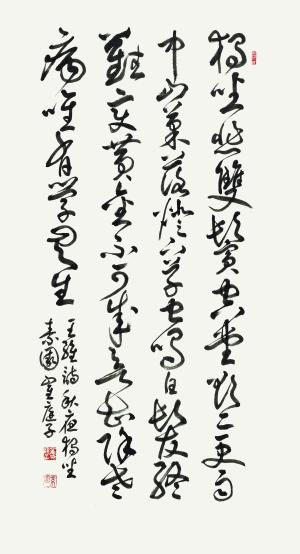 獨坐悲雙鬢空堂欲二更雨
中山菓落燈下草虫鳴白髮終
難變黃金不可成欲知除老
病唯有學無生
王維詩秋夜獨坐
素園